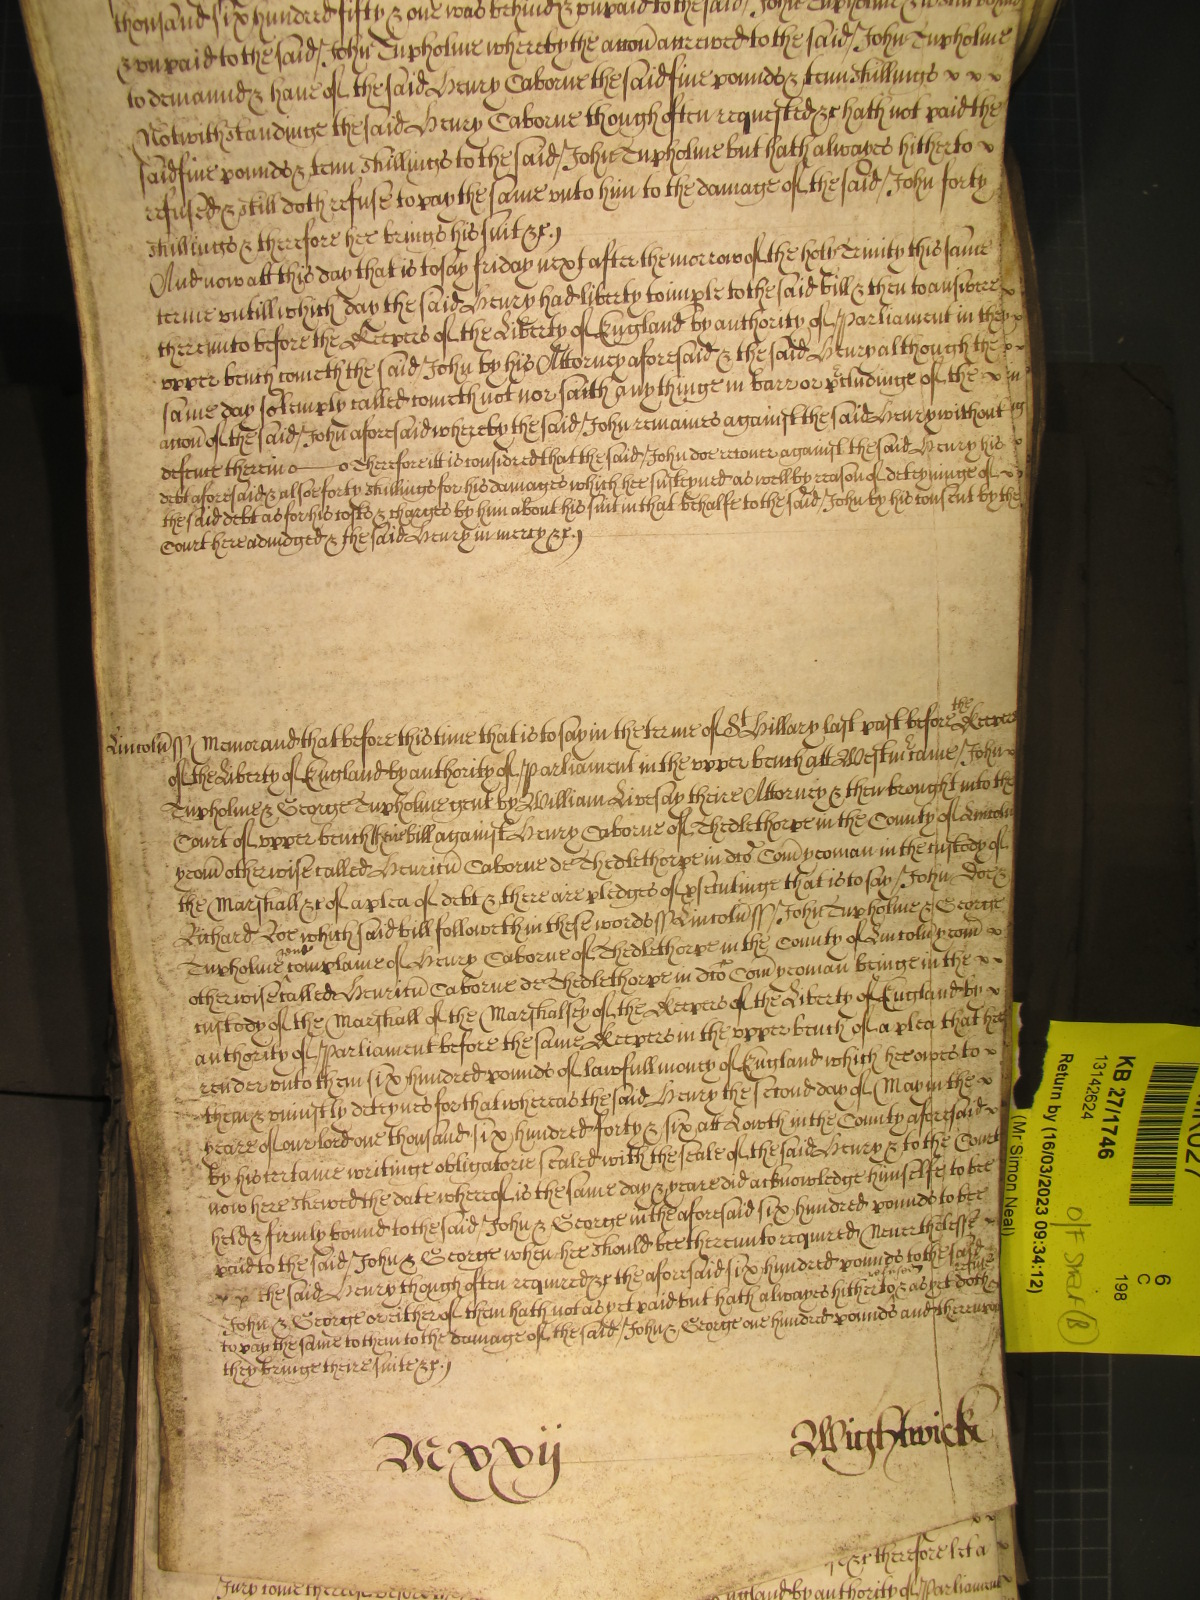 thousand six hundred fifty & one was behind & unpaid to the said John Tupholme &
& unpaid to the said John Tupholme whereby the accon accrewed to the said John Tupholme
to demaund & have of the said Henry Caborne the said five pounds & tenn shillings
Notwithstandinge the said Henry Caborne though often requested &c hath not paid the
said five pounds & tenn shillings to the said John Tupholme but hath alwayes hitherto
refused & still doth refuse to pay the same unto him to the damage of the said John forty
shillings & therefore hee brings his suit &c.
And now att this day that is to say friday next after the morrow of the holy Trinity this same
terme untill which day the said Henry had liberty to imple to the said bill & then to answere
thereunto before the Keepers of the Liberty of England by authority of Parliament in the
upper bench cometh the said John by his Attorney aforesaid & the said Henry although the
same day solemply called cometh not nor saith any thinge in barr or pcludinge of the
accon of the said John aforesaid whereby the said John remaines against the said Henry without
defence therein Therefore itt is considred that the said John doe recover against the said Henry his
debt aforesaid & alsoe forty shillings for his damages which hee susteyned as well by reason of deteyninge of
the said debt as for his costs & charges by him about his suit in that behalfe to the said John by his consent by the
Court here adiudged & the said Henry in mercy &c.
Lincoln ss Memorand that before this time that is to say in the terme of St Hillary last past before the Keepers
of the Liberty of England by authority of Parliament in the upper bench att Westmr came John
Tupholme & George Tupholme gent by William Livesay theire Attorney & then brought into the
Court of upper bench theire bill against Henry Caborne of Thedlethorpe in the County of Lincoln
yeom otherwise called Henricu Caborne de Thedlethorpe in dco Com yeoman in the custody of
the Marshall &c of a plea of debt & there are pledges of psecutinge that is to say John Doe &
Richard Roe which said bill followeth in these words ss Lincoln ss John Tupholme & George
Tupholme gent complaine of Henry Caborne of Thedlethorpe in the County of Lincoln yeom
otherwise called Henricu Caborne de Thedlethorpe in dco Com yeoman beinge in the
custody of the Marshall of the Marshalsey of the Keepers of the Liberty of England by
authority of Parliament before the same Keepers in the upper bench of a plea that hee
render unto them six hundred pounds of lawfull money of England which hee owes to
them & uniustly deteynes for that whereas the said Henry the second day of May in the
yeare of our lord one thousand six hundred forty & six att Lowth in the County aforesaid
by his certaine writinge obligatorie sealed with the seale of the said Henry & to the Court
now here shewed the date whereof is the same day & yeare did acknowledge himselfe to bee
held & firmly bound to the said John & George in the aforesaid six hundred pounds to bee
paid to the said John & George when hee should bee thereunto required Neverthelesse
the said Henry though often required &c the aforesaid six hundred pounds to the said
John & George or either of them hath not as yet paid but hath alwayes hitherto refused & as yet doth refuse
to pay the same to them to the damage of the said John & George one hundred pounds and thereupon
they bringe theire suite &c.
Mxxij
Wightwick
&c therefore let a
Jury come
England by authority of Parliament
KB 27/1746
13142624
Return by (16/03/2023 09:34:12)
(Mr Simon Neal)
6
C
198